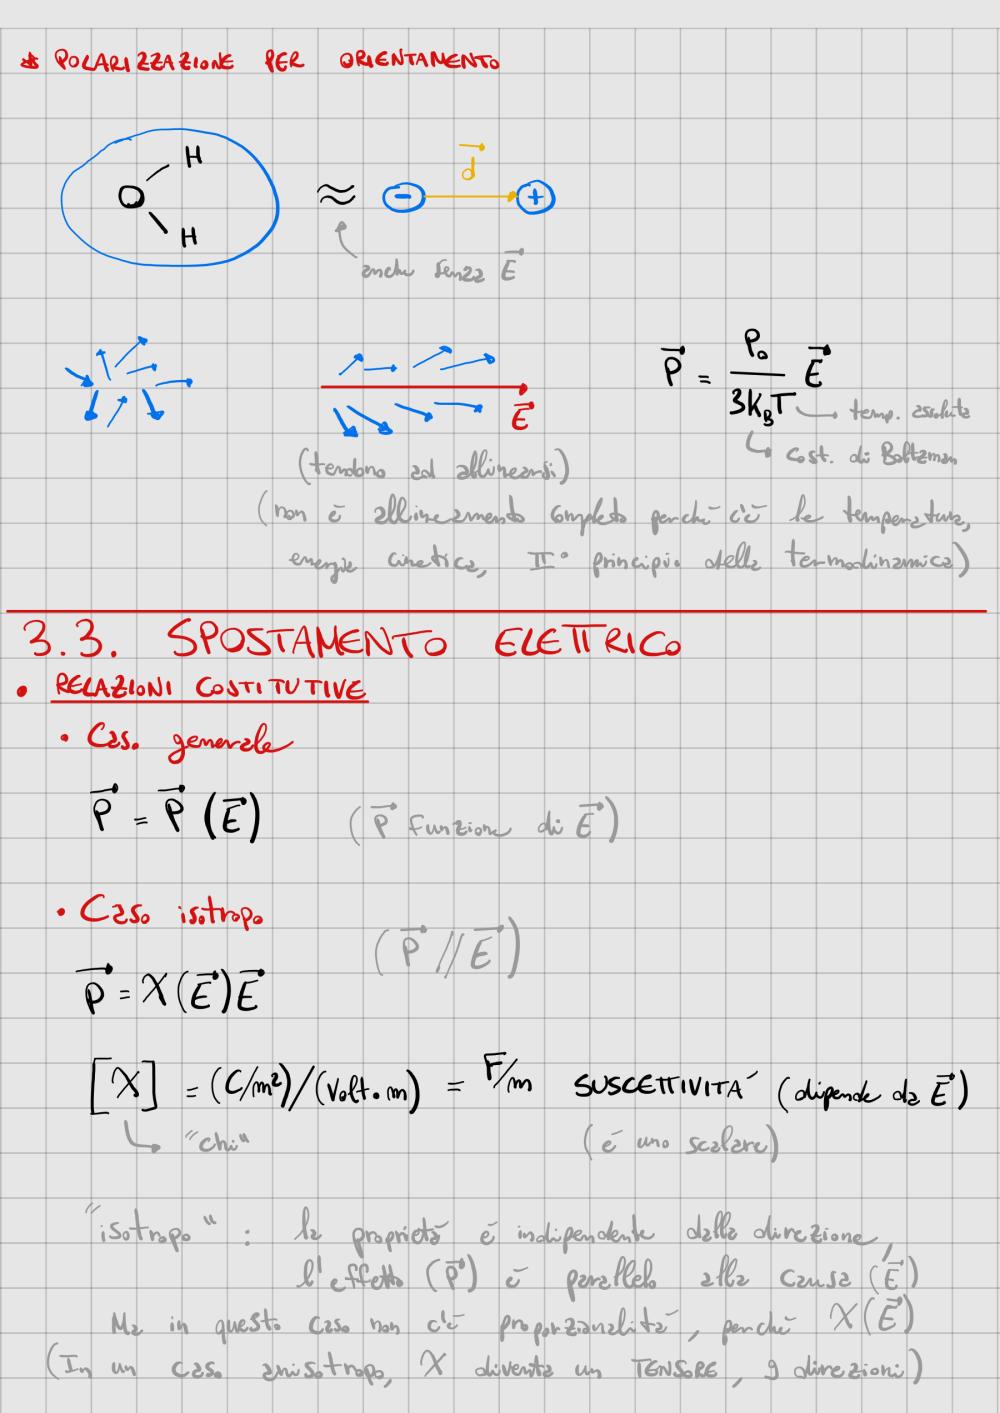 * POLARIZZAZIONE PER ORIENTAMENTO
H
O
H
≈
- d⃗ +
anche senza E⃗
P⃗ = P₀/(3K_BT) E⃗
E⃗
temp. assoluta
cost. di Boltzman
(tendono ad allinearsi)
(non è allineamento completo perché c'è la temperatura,
energia cinetica, II° principio della termodinamica)
3.3. SPOSTAMENTO ELETTRICO
• RELAZIONI COSTITUTIVE
• Caso generale
P⃗ = P⃗ (E⃗) (P⃗ funzione di E⃗)
• Caso isotropo
(P⃗ // E⃗)
P⃗ = χ(E⃗)E⃗
[χ] = (C/m²)/(Volt·m) = F/m SUSCETTIVITA' (dipende da E⃗)
"chi" (é uno scalare)
"isotropo" : la proprietà é indipendente dalla direzione,
l'effetto (P⃗) é parallelo alla causa (E⃗)
Ma in questo caso non c'è proporzionalità, perché χ(E⃗)
(In un caso anisotropo, χ diventa un TENSORE, 9 direzioni)